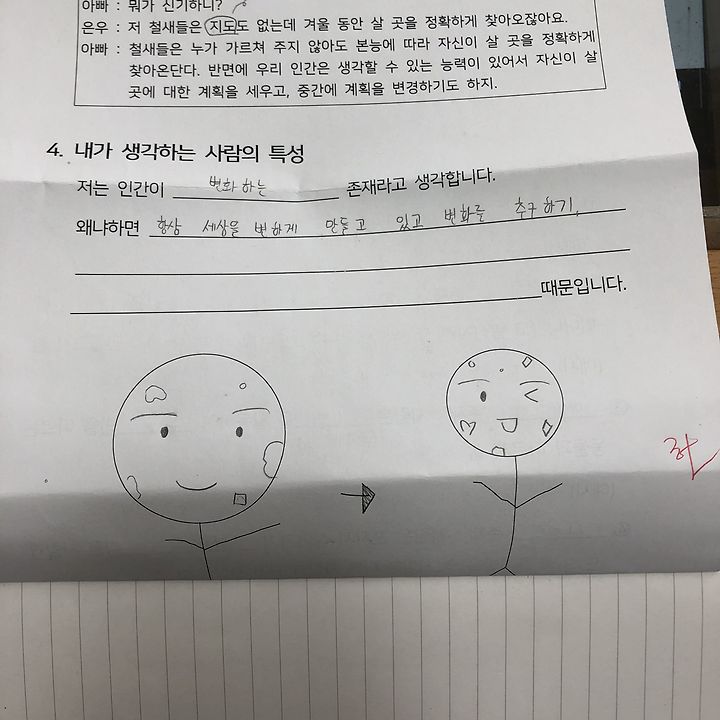 아빠 : 뭐가 신기하니?
은우 : 저 철새들은 지도도 없는데 겨울 동안 살 곳을 정확하게 찾아오잖아요.
아빠 : 철새들은 누가 가르쳐 주지 않아도 본능에 따라 자신이 살 곳을 정확하게
찾아온단다. 반면에 우리 인간은 생각할 수 있는 능력이 있어서 자신이 살
곳에 대한 계획을 세우고, 중간에 계획을 변경하기도 하지.
4. 내가 생각하는 사람의 특성
저는 인간이 변화하는 존재라고 생각합니다.
왜냐하면 항상 세상을 변하게 만들고 있고 변화를 추구하기,
때문입니다.